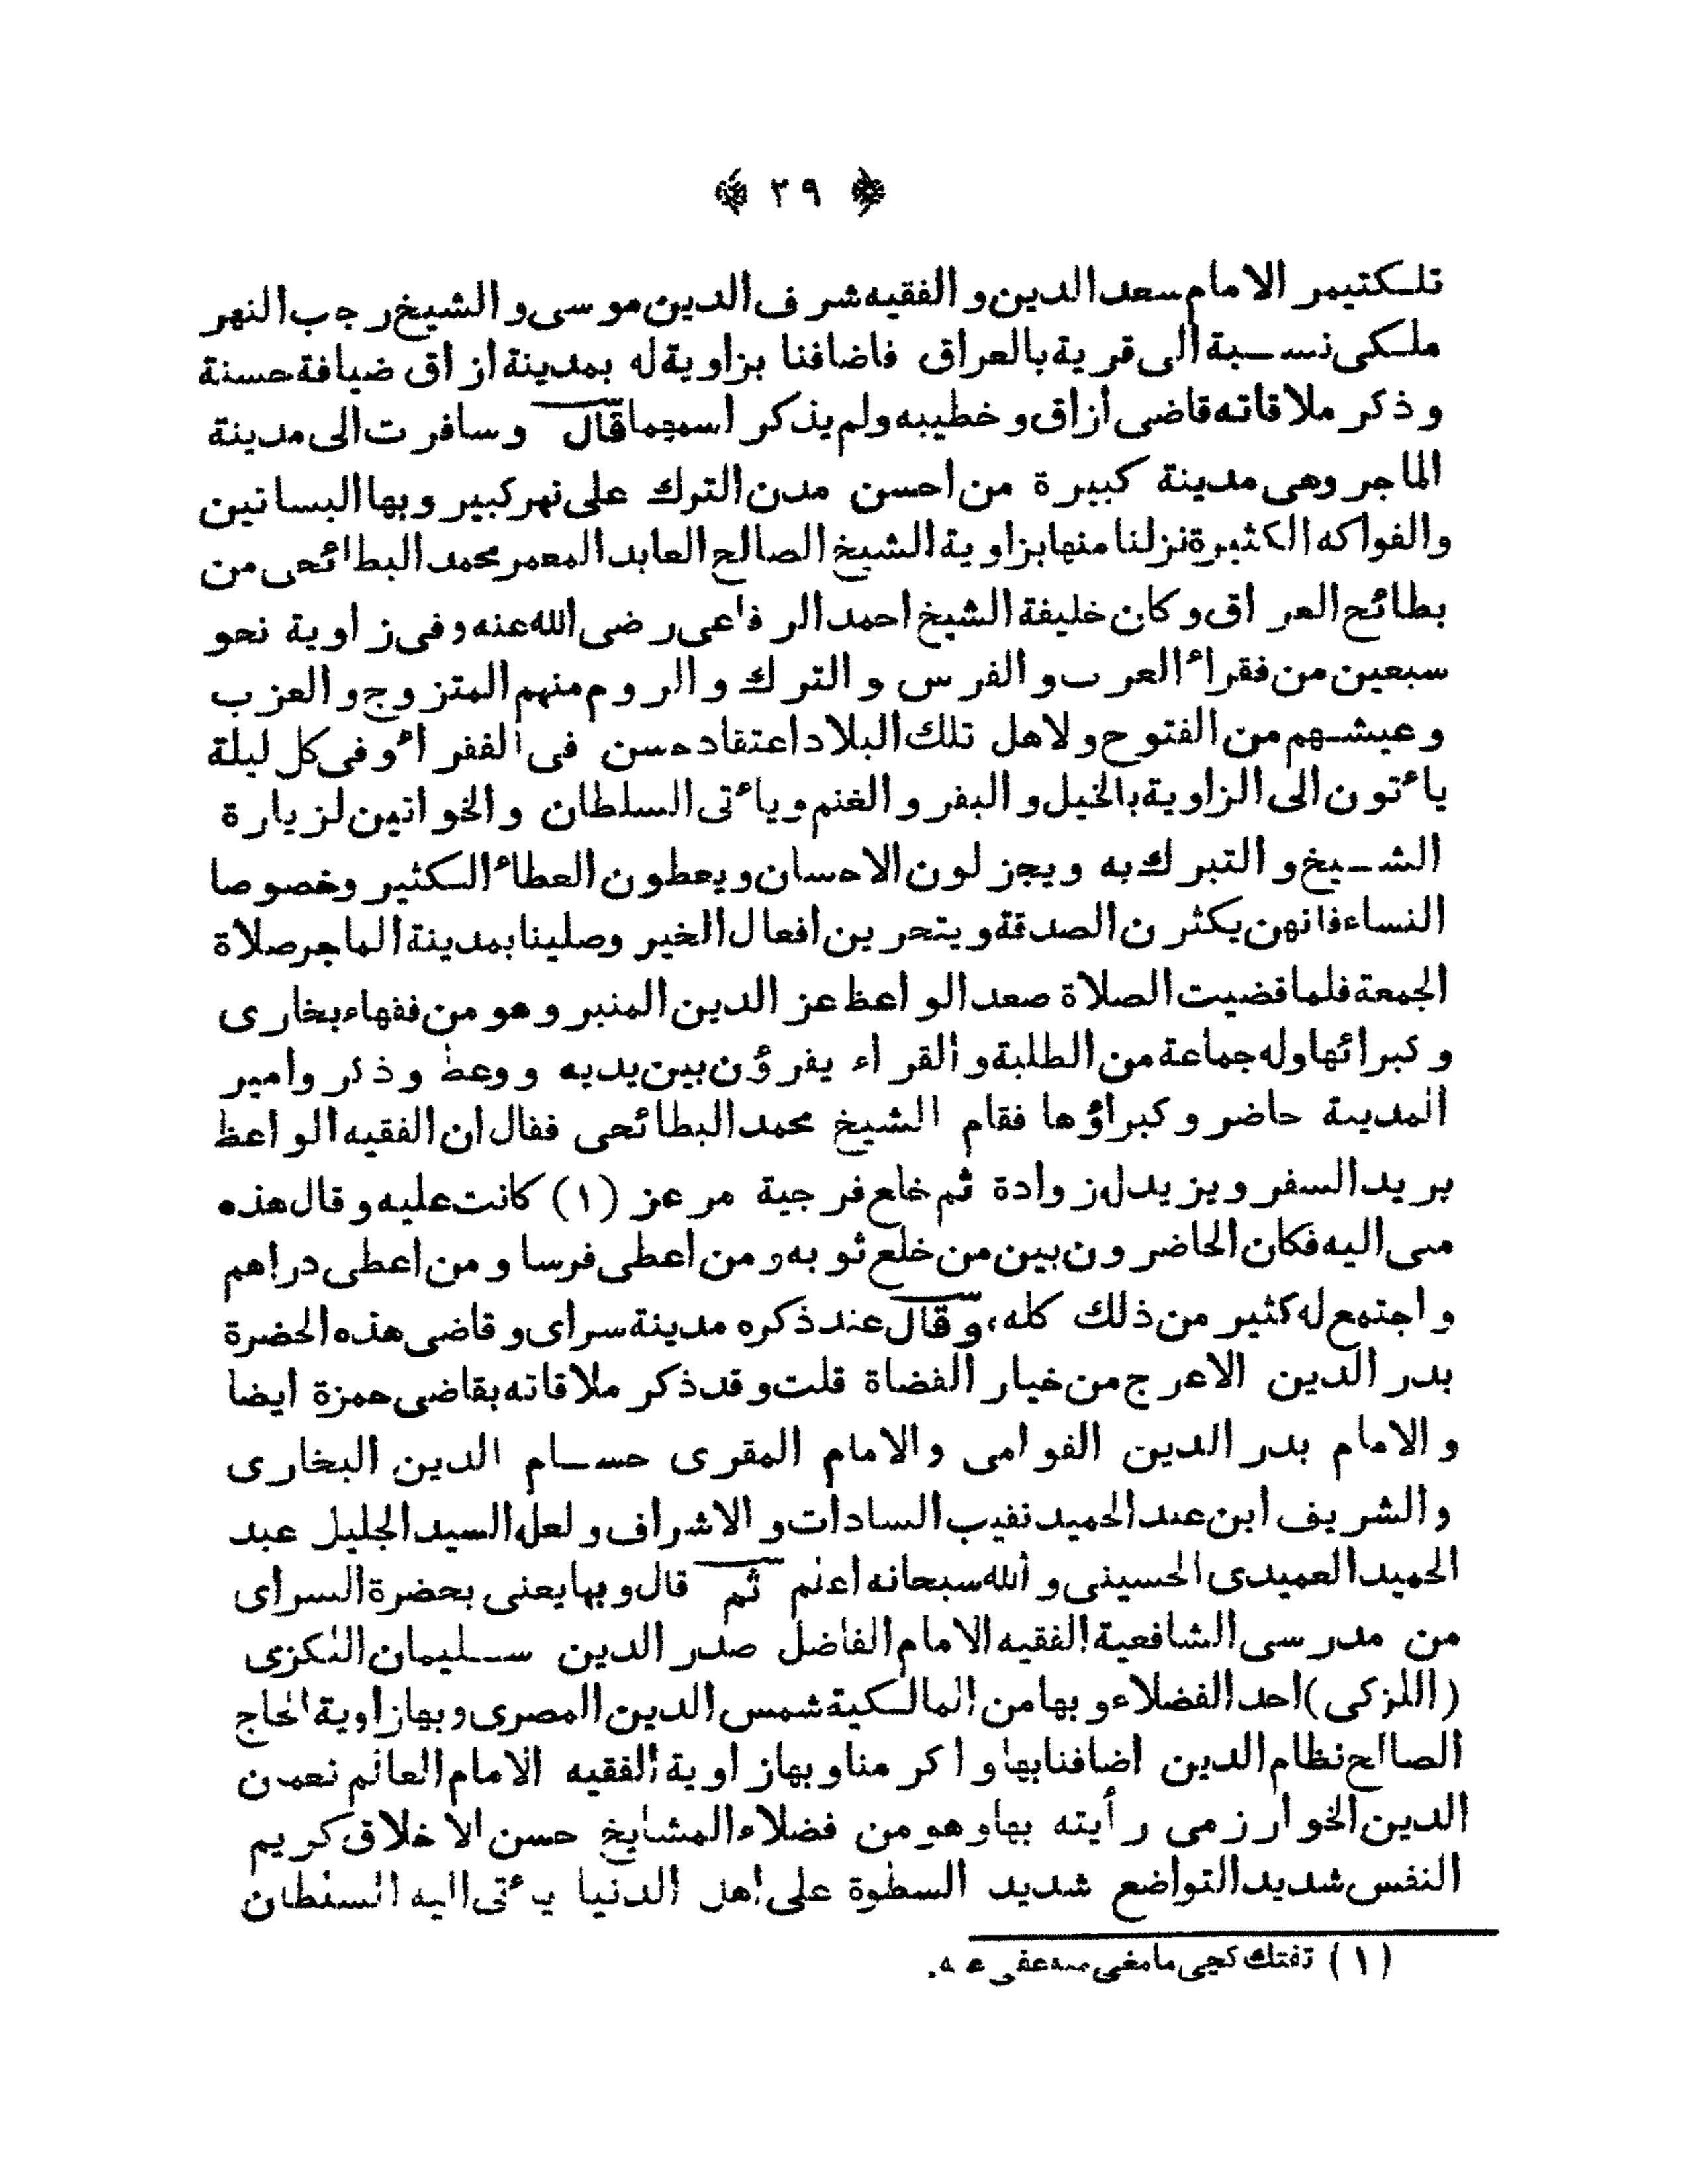 ﴿ ٣٩ ﴾
تلكتيمر الامام سعد الدين و الفقيه شرف الدين موسى و الشيخ رجب النهر
ملكى نسبة الى قرية بالعراق فاضافنا بزاوية له بمدينة ازاق ضيافة حسنة
و ذكر ملاقاته قاضى أزاق و خطيبه و لم يذكر اسمهما قال و سافرت الى مدينة
الماجر وهى مدينة كبيرة من احسن مدن الترك على نهر كبير و بها البساتين
والفواكه الكثيرة نزلنا منها بزاوية الشيخ الصالح العابد المعمر محمد البطائحى من
بطائح العراق و كان خليفة الشيخ احمد الرفاعى رضى الله عنه و فى زاوية نحو
سبعين من فقراء العرب و الفرس و الترك و الروم منهم المتزوج و العزب
و عيشهم من الفتوح و لاهل تلك البلاد اعتقاد حسن فى الفقراء و فى كل ليلة
ياءتون الى الزاوية بالخيل و البقر و الغنم و ياءتى السلطان و الخواتين لزيارة
الشيخ و التبرك به و يجزلون الاحسان و يعطون العطاء الكثير و خصوصا
النساء فانهن يكثرن الصدقة و يتحرين افعال الخير وصلينا بمدينة الماجر صلاة
الجمعة فلما قضيت الصلاة صعد الواعظ عز الدين المنبر و هو من فقهاء بخارى
و كبرائها وله جماعة من الطلبة و القراء يقرؤن بين يديه و وعظ و ذكر و امير
المدينة حاضر و كبراؤها فقام الشيخ محمد البطائحى فقال ان الفقيه الواعظ
يريد السفر و يزيد لزوادة ثم خلع فرجية مرعز (١) كانت عليه و قال هذه
منى اليه فكان الحاضرون بين من خلع ثوبه و من اعطى فرسا و من اعطى دراهم
و اجتمع له كثير من ذلك كله، و قال عند ذكره مدينة سراى و قاضى هذه الحضرة
بدر الدين الاعرج من خيار القضاة قلت و قد ذكر ملاقاته بقاضى حمزة ايضا
و الامام بدر الدين القوامى و الامام المقرى حسام الدين البخارى
و الشريف ابن عبد الحميد نقيب السادات و الاشراف و لعله السيد الجليل عبد
الحميد العميدى الحسينى و الله سبحانه اعلم ثم قال و بها يعنى بحضرة السراى
من مدرسى الشافعية الفقيه الامام الفاضل صدر الدين سليمان النكزى
(اللزكى) احد الفضلاء و بها من المالكية شمس الدين المصرى و بها زاوية الحاج
الصالح نظام الدين اضافنا بها و اكرمنا و بها زاوية الفقيه الامام العالم نعمن
الدين الخوارزمى رأيته بها و هو من فضلاء المشايخ حسن الاخلاق كريم
النفس شديد التواضع شديد السطوة على اهل الدنيا يءتى اليه السلطان
(١) تفتك كچى مامغى